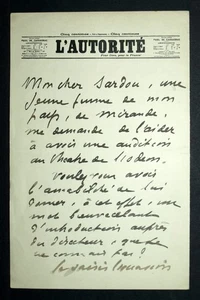 L'AUTORITÉ
Mon cher Sardou, une
jeune femme de mon
pays, de Mirande,
me demande de l'aider
à avoir une audition
au théâtre de l'Odéon.
Voulez-vous avoir
l'amabilité de lui
donner, à cet effet, un
mot
d'introduction auprès
du directeur, que je
ne connais pas ?